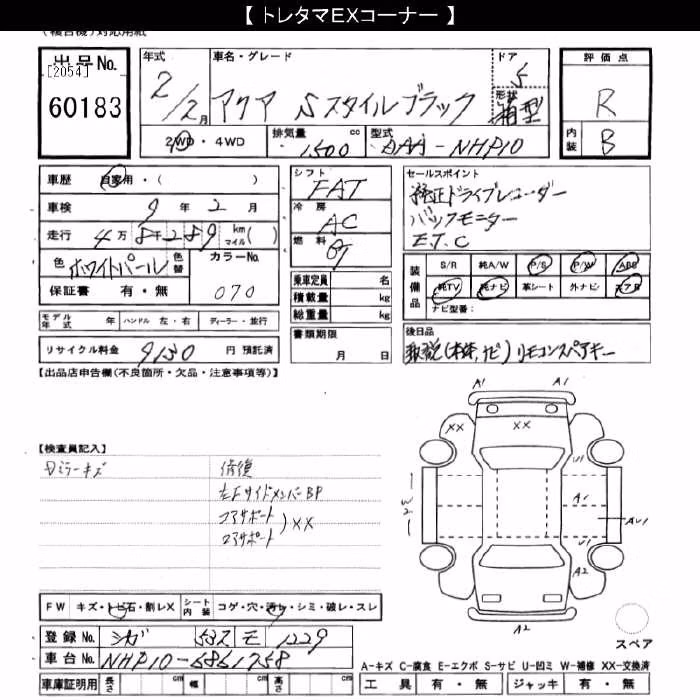 【 トレタマEXコーナー 】
(複合機)対応用紙
出品No.
[2054]
60183
年式 車名・グレード ドア 評価点
2/2月 アクア Sスタイルブラック 5 R
形状 箱型
2WD・4WD 排気量 1500 cc 型式 DAA-NHP10 内装 B
車歴 自家用・( )
シフト FAT
セールスポイント
純正ドライブレコーダー
バックモニター
E.T.C
車検 9年2月
冷房 AC
走行 4万8千289 km マイル( )
燃料
色 ホワイトパール 色替 カラーNo. 070
保証書 有・無
乗車定員 名
積載量 kg
総重量 kg
装備品 S/R 純A/W P/S P/W ABS
純TV 純ナビ 革シート 外ナビ エアB
ナビ型番:
モデル年式 年 ハンドル 左・右 ディーラー・並行
書類期限 月 日
後日品
取説(本体,ナビ) リモコンスペアキー
リサイクル料金 9130 円 預託済
【出品店申告欄(不良箇所・欠品・注意事項等)】
【検査員記入】
ミラーキズ
修復
左Fサイドメンバー BP
コアサポート
コアサポート
) XX
A1 A1
XX XX
U1
A1
W2
AU1
U1
A2
A2
スペア
FW キズ・トビ石・割レX シート内装 コゲ・穴・汚レ・シミ・破レ・スレ
登録No. シガ 532 モ 1229
車台No. NHP10-6861758
車庫証明用 長さ cm 幅 cm 高さ cm
A-キズ C-腐食 E-エクボ S-サビ U-凹ミ W-補修 XX-交換済
工具 有・無 ジャッキ 有・無